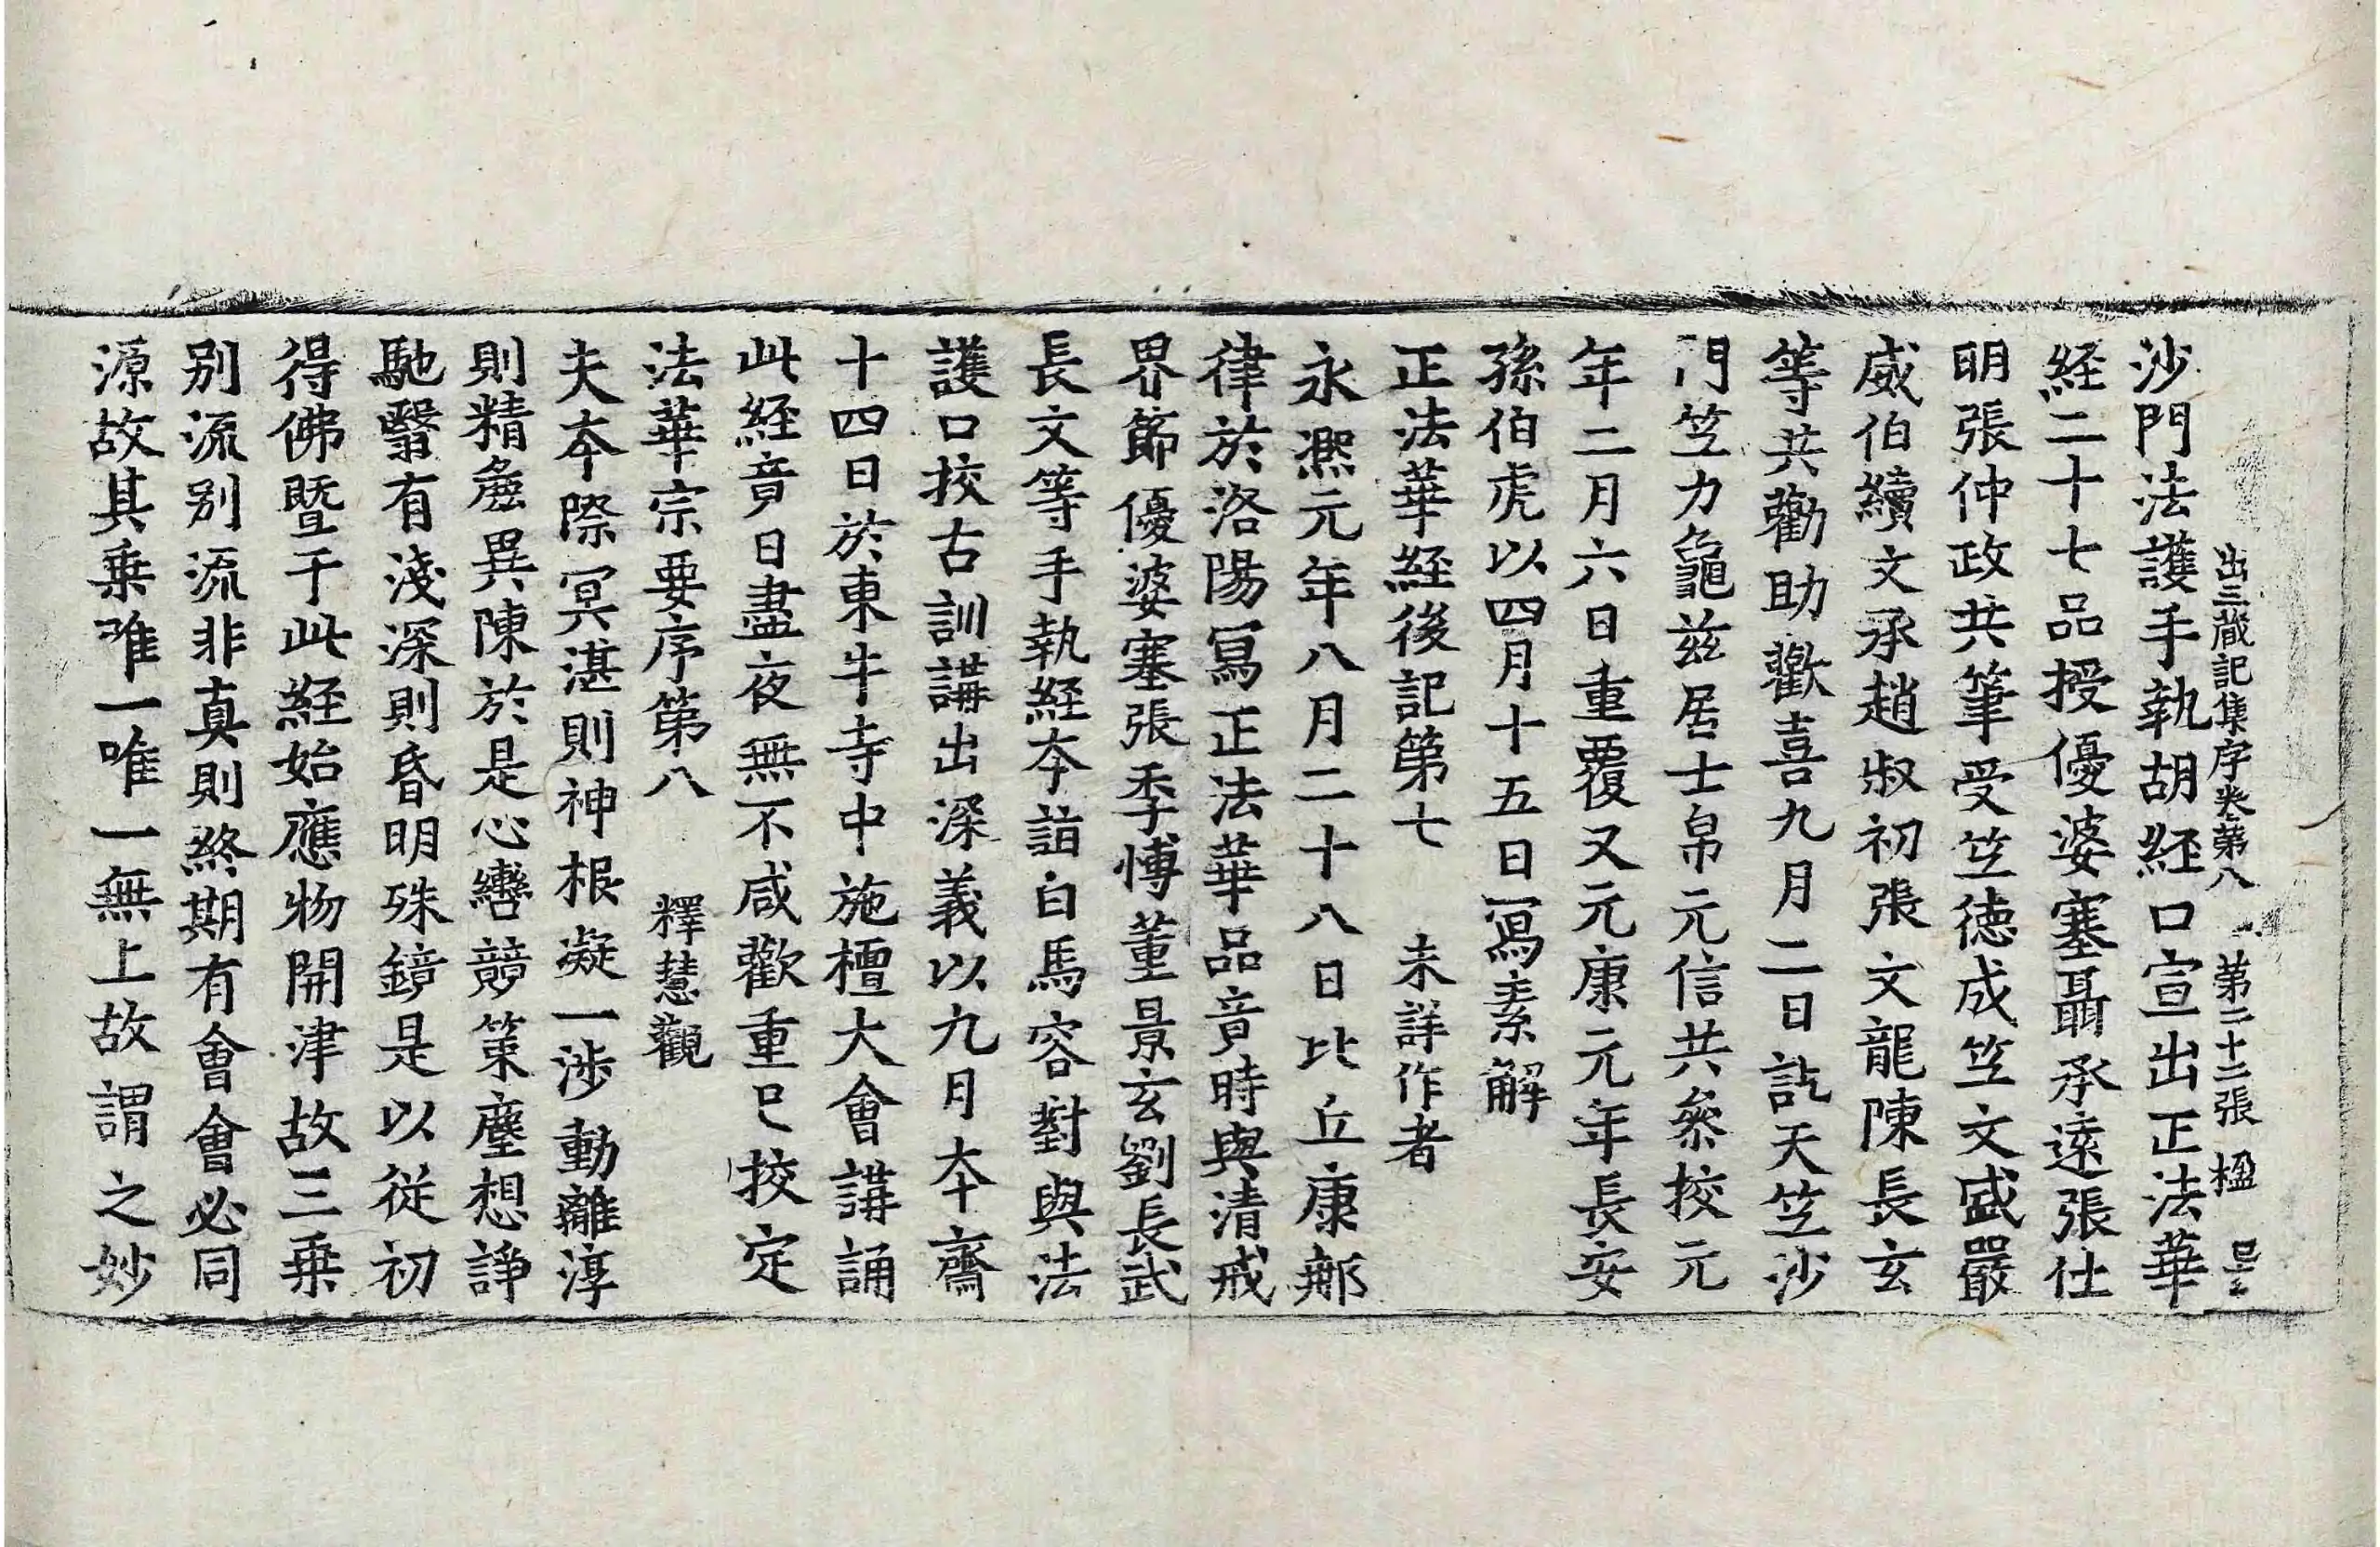 出三藏記集序卷第八 第二十二張 楹
沙門法護手執胡経口宣出正法華
経二十七品授優婆塞聶承遠張仕
明張仲政共筆受竺德成竺文盛嚴
威伯續文承趙叔初張文龍陳長玄
等共勸助歡喜九月二日訖天竺沙
門竺力龜兹居士帛元信共叅挍元
年二月六日重覆又元康元年長安
孫伯虎以四月十五日寫素解
正法華経後記第七 未詳作者
永熈元年八月二十八日比丘康那
律於洛陽寫正法華品竟時與清戒
界節優婆塞張季博董景玄劉長武
長文等手執経夲詣白馬容對與法
護口挍古訓講出深義以九月夲齋
十四日於東牛寺中施檀大會講誦
此経竟日盡夜無不咸歡重已挍定
法華宗要序第八 釋慧觀
夫夲際冥湛則神根凝一涉動離淳
則精麁異陳於是心轡競策塵想諍
馳翳有淺深則昏明殊鏡是以從初
得佛暨于此経始應物開津故三乗
别流别流非真則終期有會會必同
源故其乗唯一唯一無上故謂之妙